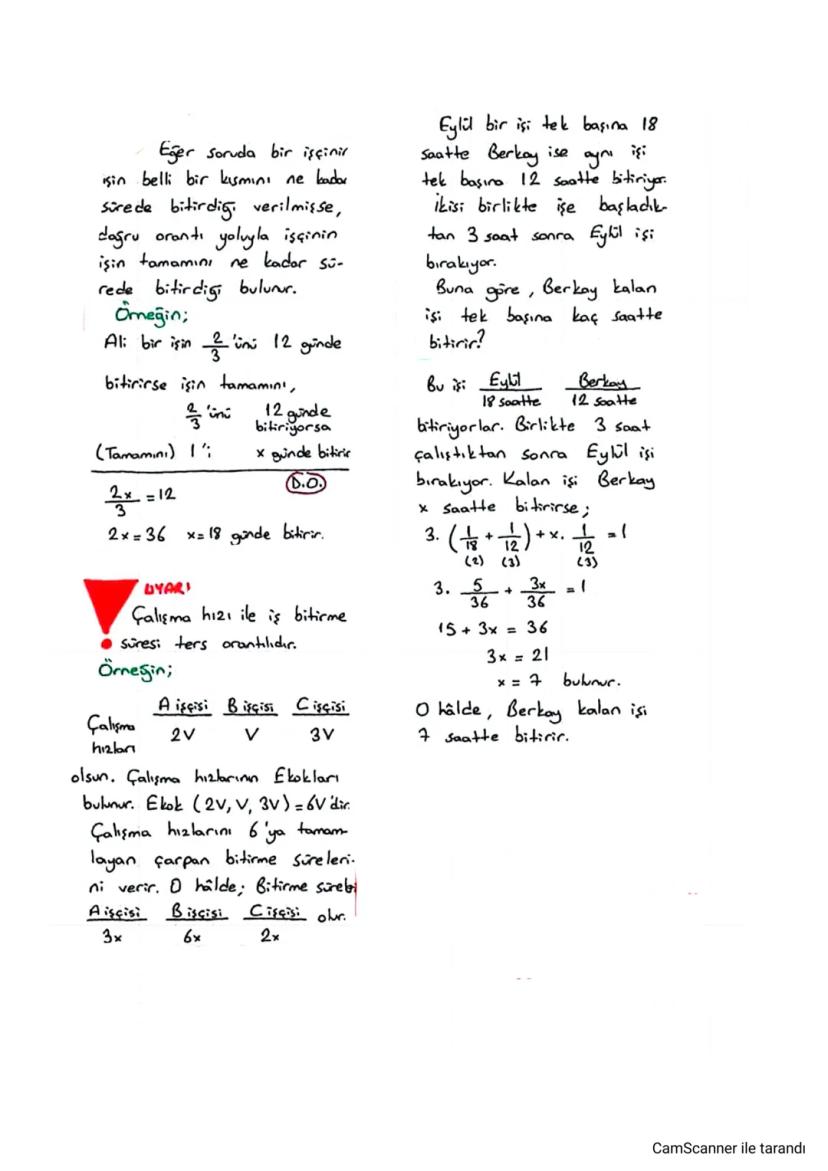 Eğer soruda bir işçinin
işin belli bir kısmını ne kadar
sürede bitirdiği verilmişse,
doğru orantı yoluyla işçinin
işin tamamını ne kadar sü-
rede bitirdiği bulunur.
Örneğin;
Ali bir işin 2/3 'ünü 12 günde
bitirirse işin tamamını,
2/3 'ünü 12 günde
bitiriyorsa
(Tamamını) 1 'i x günde bitirir
D.O.
2x/3 = 12
2x = 36 x = 18 günde bitirir.
UYARI
Çalışma hızı ile iş bitirme
süresi ters orantılıdır.
Örneğin;
A işçisi B işçisi C işçisi
Çalışma
hızları 2V V 3V
olsun. Çalışma hızlarının Ekokları
bulunur. Ekok (2V, V, 3V) = 6V'dir.
Çalışma hızlarını 6'ya tamam-
layan çarpan bitirme süreleri-
ni verir. O hâlde; Bitirme
A işçisi B işçisi C işçisi olur.
3x 6x 2x
Eylül bir işi tek başına 18
saatte Berkay ise aynı işi
tek başına 12 saatte bitiriyor.
İkisi birlikte işe başladık-
tan 3 saat sonra Eylül işi
bırakıyor.
Buna göre, Berkay kalan
işi tek başına kaç saatte
bitirir?
Bu işi Eylül Berkay
18 saatte 12 saatte
bitiriyorlar. Birlikte 3 saat
çalıştıktan sonra Eylül işi
bırakıyor. Kalan işi Berkay
x saatte bitirirse;
3. (1/18 + 1/12) + x. 1/12 = 1
(2) (3) (3)
3. 5/36 + 3x/36 = 1
15 + 3x = 36
3x = 21
x = 7 bulunur.
O hâlde, Berkay kalan işi
7 saatte bitirir.
CamScanner ile tarandı